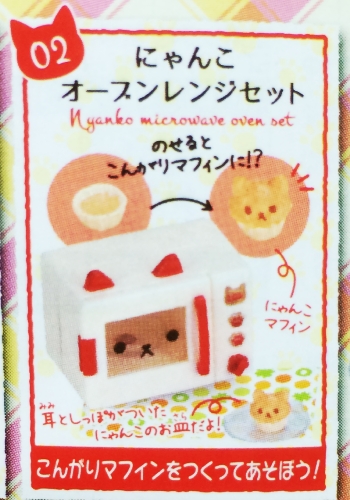 02
にゃんこ
オーブンレンジセット
Nyanko microwave oven set
のせると
こんがりマフィンに!?
にゃんこ
マフィン
耳としっぽがついた
にゃんこのお皿だよ!
こんがりマフィンをつくってあそぼう!